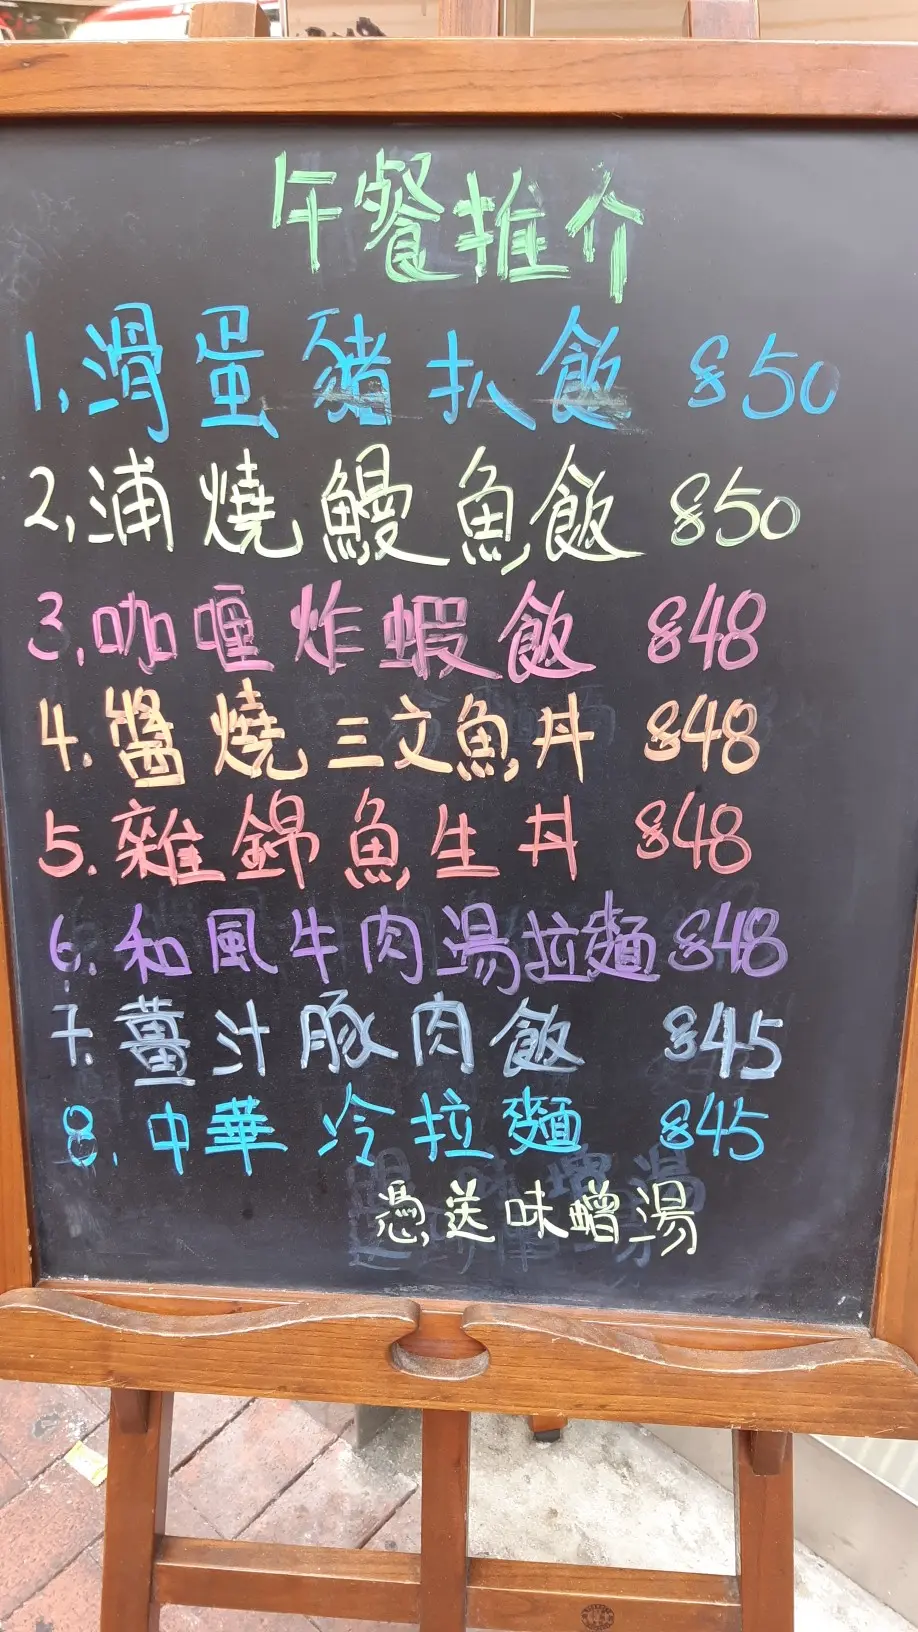 午餐推介
1. 滑蛋豬扒飯 $50
2. 浦燒鰻魚飯 $50
3. 咖喱炸蝦飯 $48
4. 醬燒三文魚丼 $48
5. 雜錦魚生丼 $48
6. 和風牛肉湯拉麵 $48
7. 薑汁豚肉飯 $45
8. 中華冷拉麵 $45
憑送味噌湯